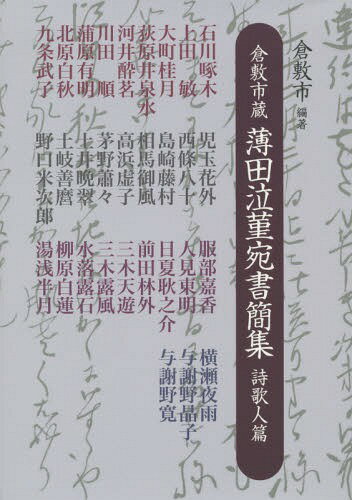 倉敷市 編著
倉敷市蔵 薄田泣菫宛書簡集 詩歌人篇
石川啄木
上田 敏
大町桂月
荻原井泉水
河井酔茗
川田 順
蒲原有明
北原白秋
九条武子
児玉花外
西條八十
島崎藤村
相馬御風
高浜虚子
茅野蕭々
土井晩翠
土岐善麿
野口米次郎
服部嘉香
人見東明
日夏耿之介
前田林外
三木天遊
三木露風
水落露石
柳原白蓮
湯浅半月
横瀬夜雨
与謝野晶子
与謝野寛